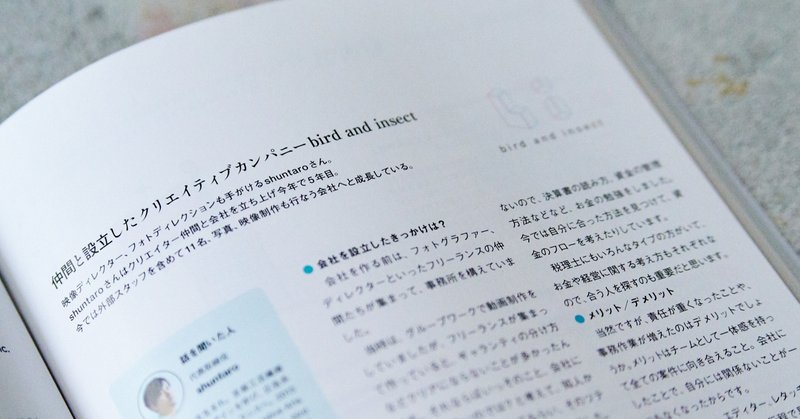 仲間と設立したクリエイティブカンパニーbird and insect
映像ディレクター、フォトディレクションも手がけるshuntaroさん。
shuntaroさんはクリエイター仲間と会社を立ち上げ今年で5年目。
今では外部スタッフを含めて11名。写真、映像制作も行なう会社へと成長している。
bird and insect
話を聞いた人
代表取締役
shuntaro
●会社を設立したきっかけは?
会社を作る前は、フォトグラファー、
ディレクターといったフリーランスの仲
間たちが集まって、事務所を構えていま
した。
当時は、グループワークで動画制作を
していましたが、フリーランスが集まっ
て作っていると、ギャランティの分け方
ないので、決算書の読み方、資金の管理
方法などなど、お金の勉強をしました。
今では自分に合った方法を見つけて、資
金のフローを考えたりしています。
税理士にもいろんなタイプの方がいて、
お金や経営に関する考え方もそれぞれな
ので、合う人を探すのも重要だと思います。
●メリット/デメリット
当然ですが、責任が重くなったことや、
事務作業が増えたのはデメリットでしょ
うか。メリットはチームとして一体感を持っ
て全ての案件に向き合えること。会社に
したことで、自分には関係ないことが一
なくなったからです。